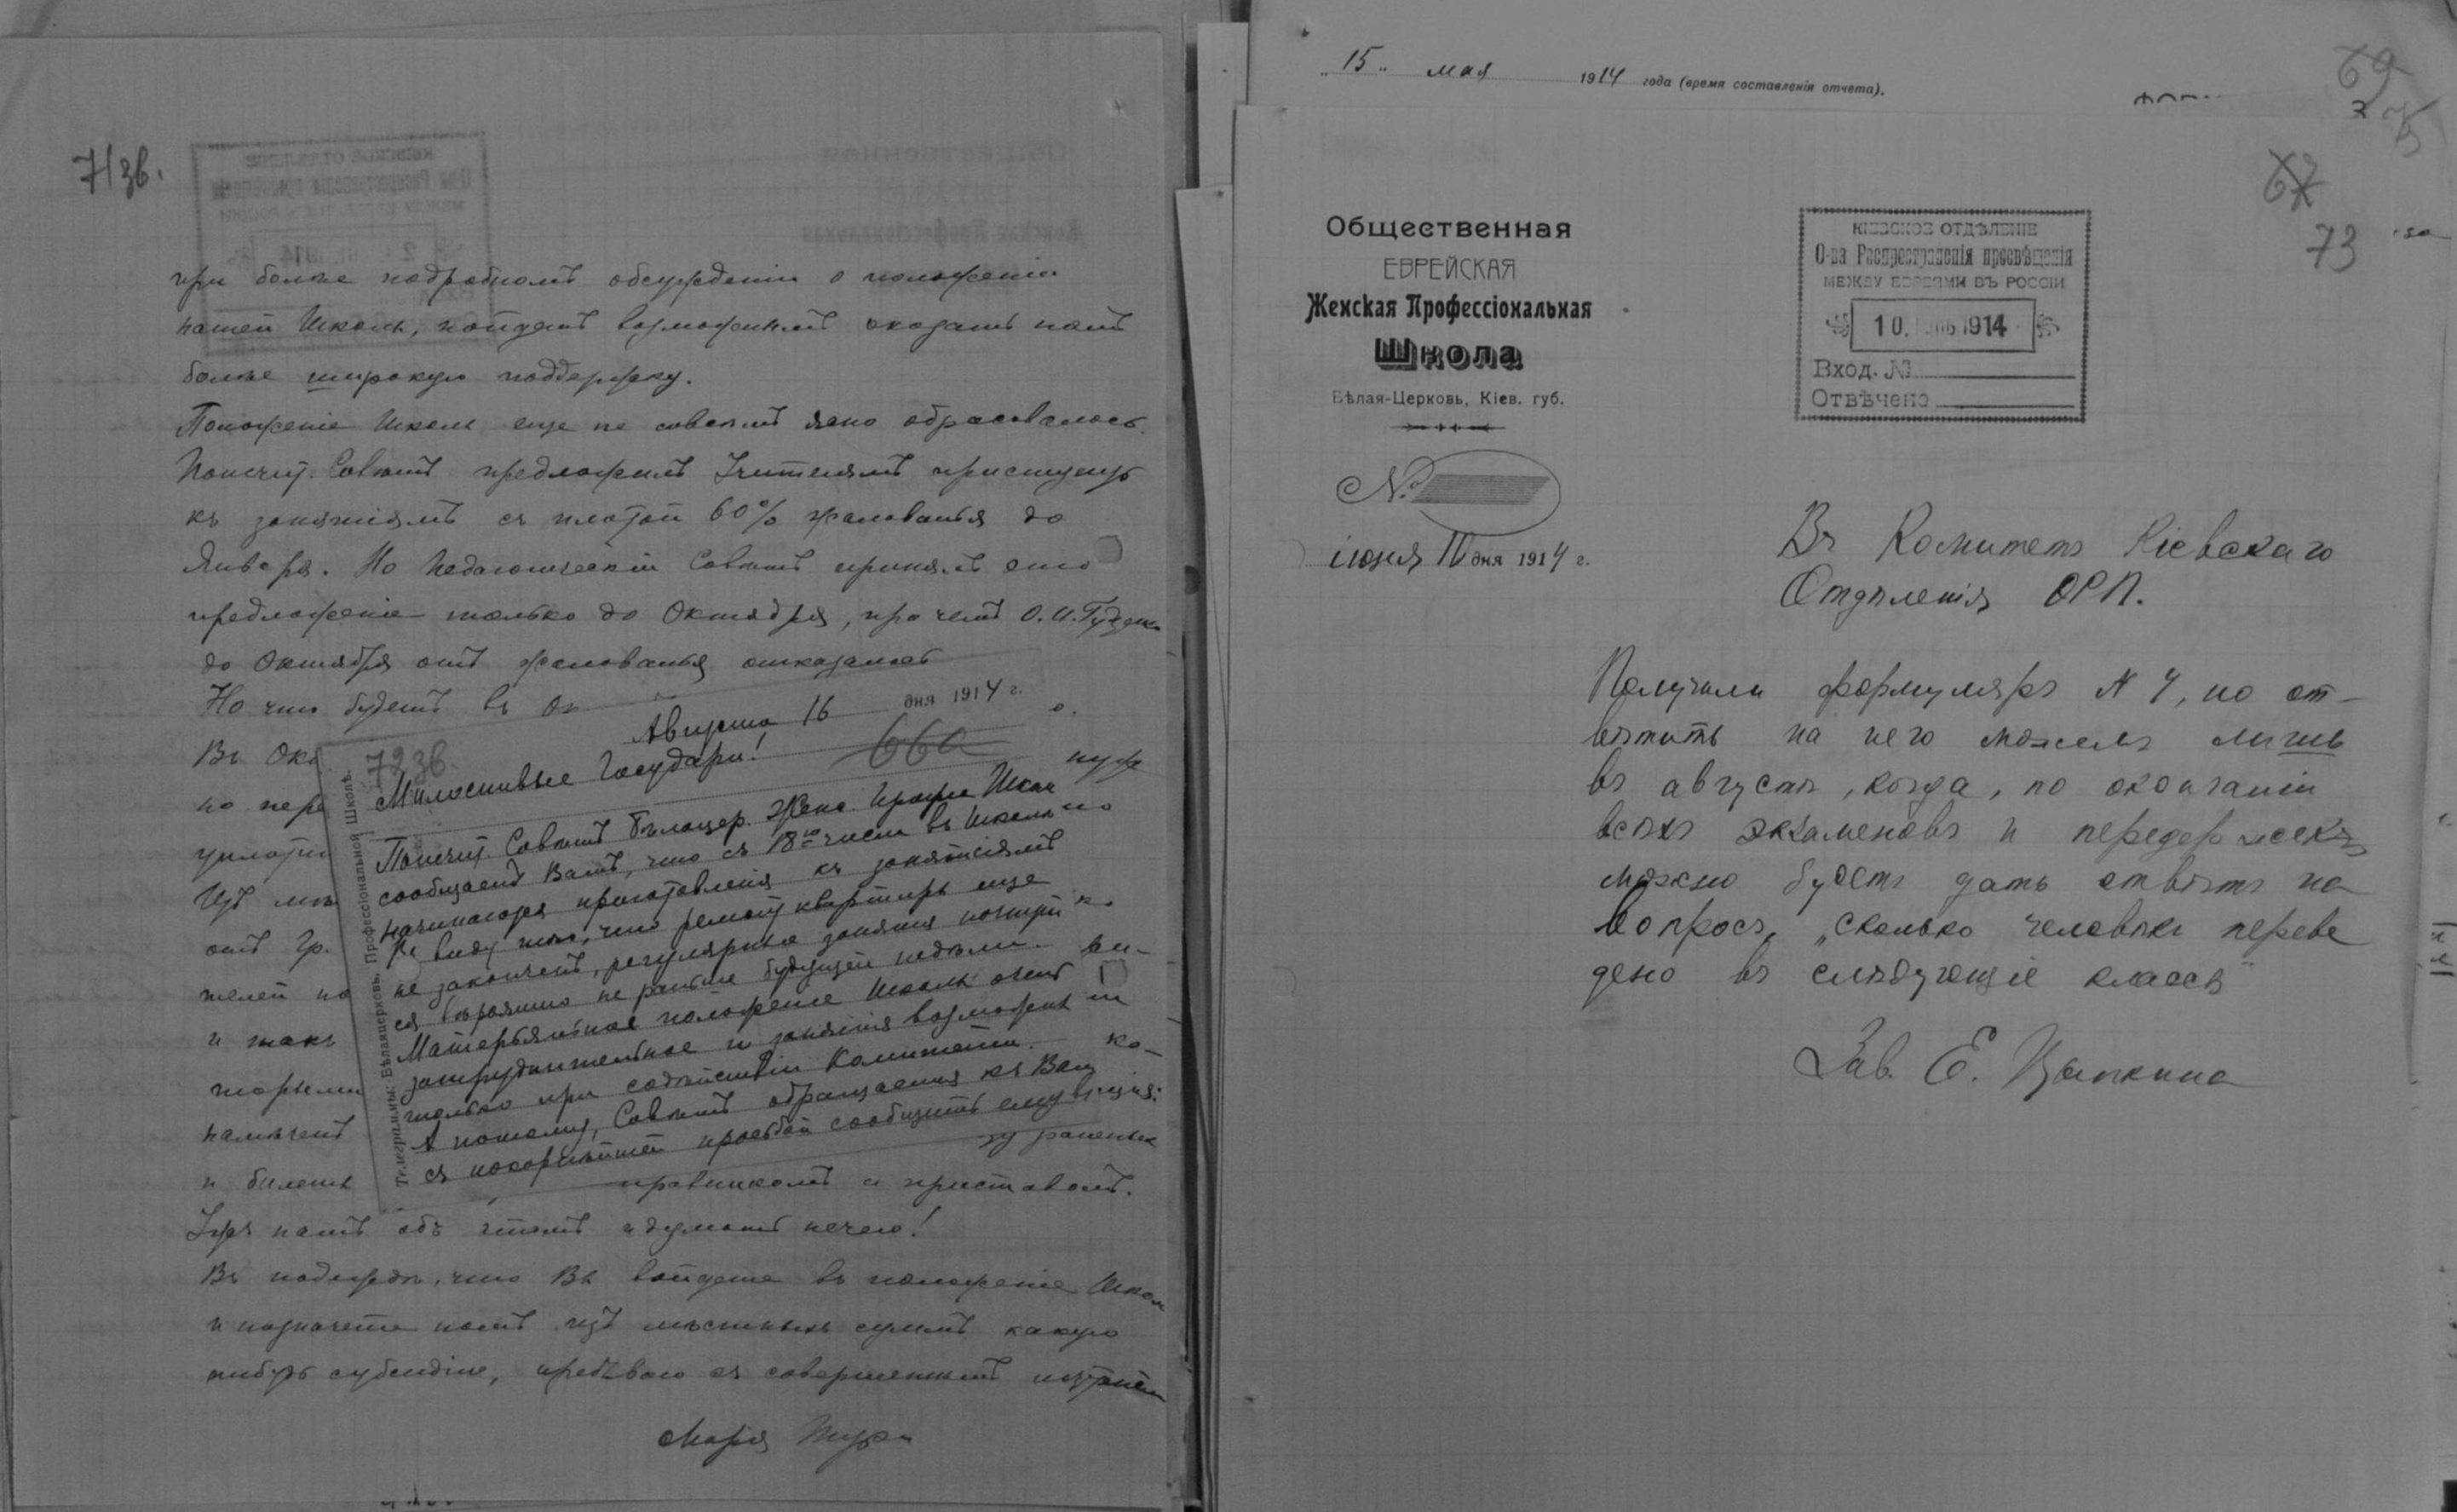 71 зв.
при болѣе подробномъ обсужденіи о положеніи
нашей Школы, найдетъ возможнымъ оказать намъ
болѣе широкую поддержку.
Положеніе Школы еще не совсѣмъ ясно обрасовалось.
Попечит. Совѣтъ предложилъ Учителямъ приступить
къ занятіямъ съ платой 60% жалованья до
Января. Но Педагогическій Совѣтъ принялъ это
предложеніе только до Октября, при чемъ О. И.
до Октября отъ жалованья отказалась
Но что будетъ въ Ок
Въ Окт
но пере
уплотни
Изъ
отъ Гр.
телей на
и такъ
торыми
намѣченъ
и билеты
правникомъ и приставомъ.
Ужъ намъ объ этомъ и думать нечего!
Въ надеждѣ, что Вы войдете въ положеніе Школы
и назначете намъ изъ мѣстныхъ суммъ какую
нибудь субсидію, пребываю съ совершеннымъ
Марія
Августа 16 дня 1914 г.
72 зв.
66а
Милостивые Государи!
Попечит. Совѣтъ Бѣлоцер. Женс. Профес. Школы
сообщаетъ Вамъ, что съ 18го числа въ Школѣ
начинаются приготовленія къ занятіямъ
Въ виду того, что ремонт квартиры еще
не законченъ, регулярныя занятія начнут
ся вѣроятно не раньше будущей недѣли.
Матерьяльное положеніе Школы очень
затруднительное и занятія возможны
только при содѣйствіи Комитета.
А потому, Совѣтъ обращается къ Вам
съ покорнѣйшей просьбой сообщить ему
Телеграммы: Бѣлаяцерковь, Профессіональной Школѣ.
„15„ мая 1914 года (время составленія отчета).
69
75
67
73
Общественная
ЕВРЕЙСКАЯ
Женская Профессіональная
Школа
Бѣлая-Церковь, Кіев. губ.
№
іюня 10 дня 1914 г.
КІЕВСКОЕ ОТДѢЛЕНІЕ
О-ва Распространенія просвѣщенія
МЕЖДУ ЕВРЕЯМИ ВЪ РОССІИ
10. 1914
Вход. №
Отвѣчено
Въ Комитетъ Кіевскаго
Отдѣленія ОРП.
Получили формуляръ N 4, но от-
вѣтить на него можемъ лишь
въ августѣ, когда, по окончаніи
всѣхъ экзаменовъ и передержекъ,
можно будетъ дать отвѣтъ на
вопросъ, „сколько человѣкъ переве
дено въ слѣдующіе классы"
Зав. Е. Цыпкина